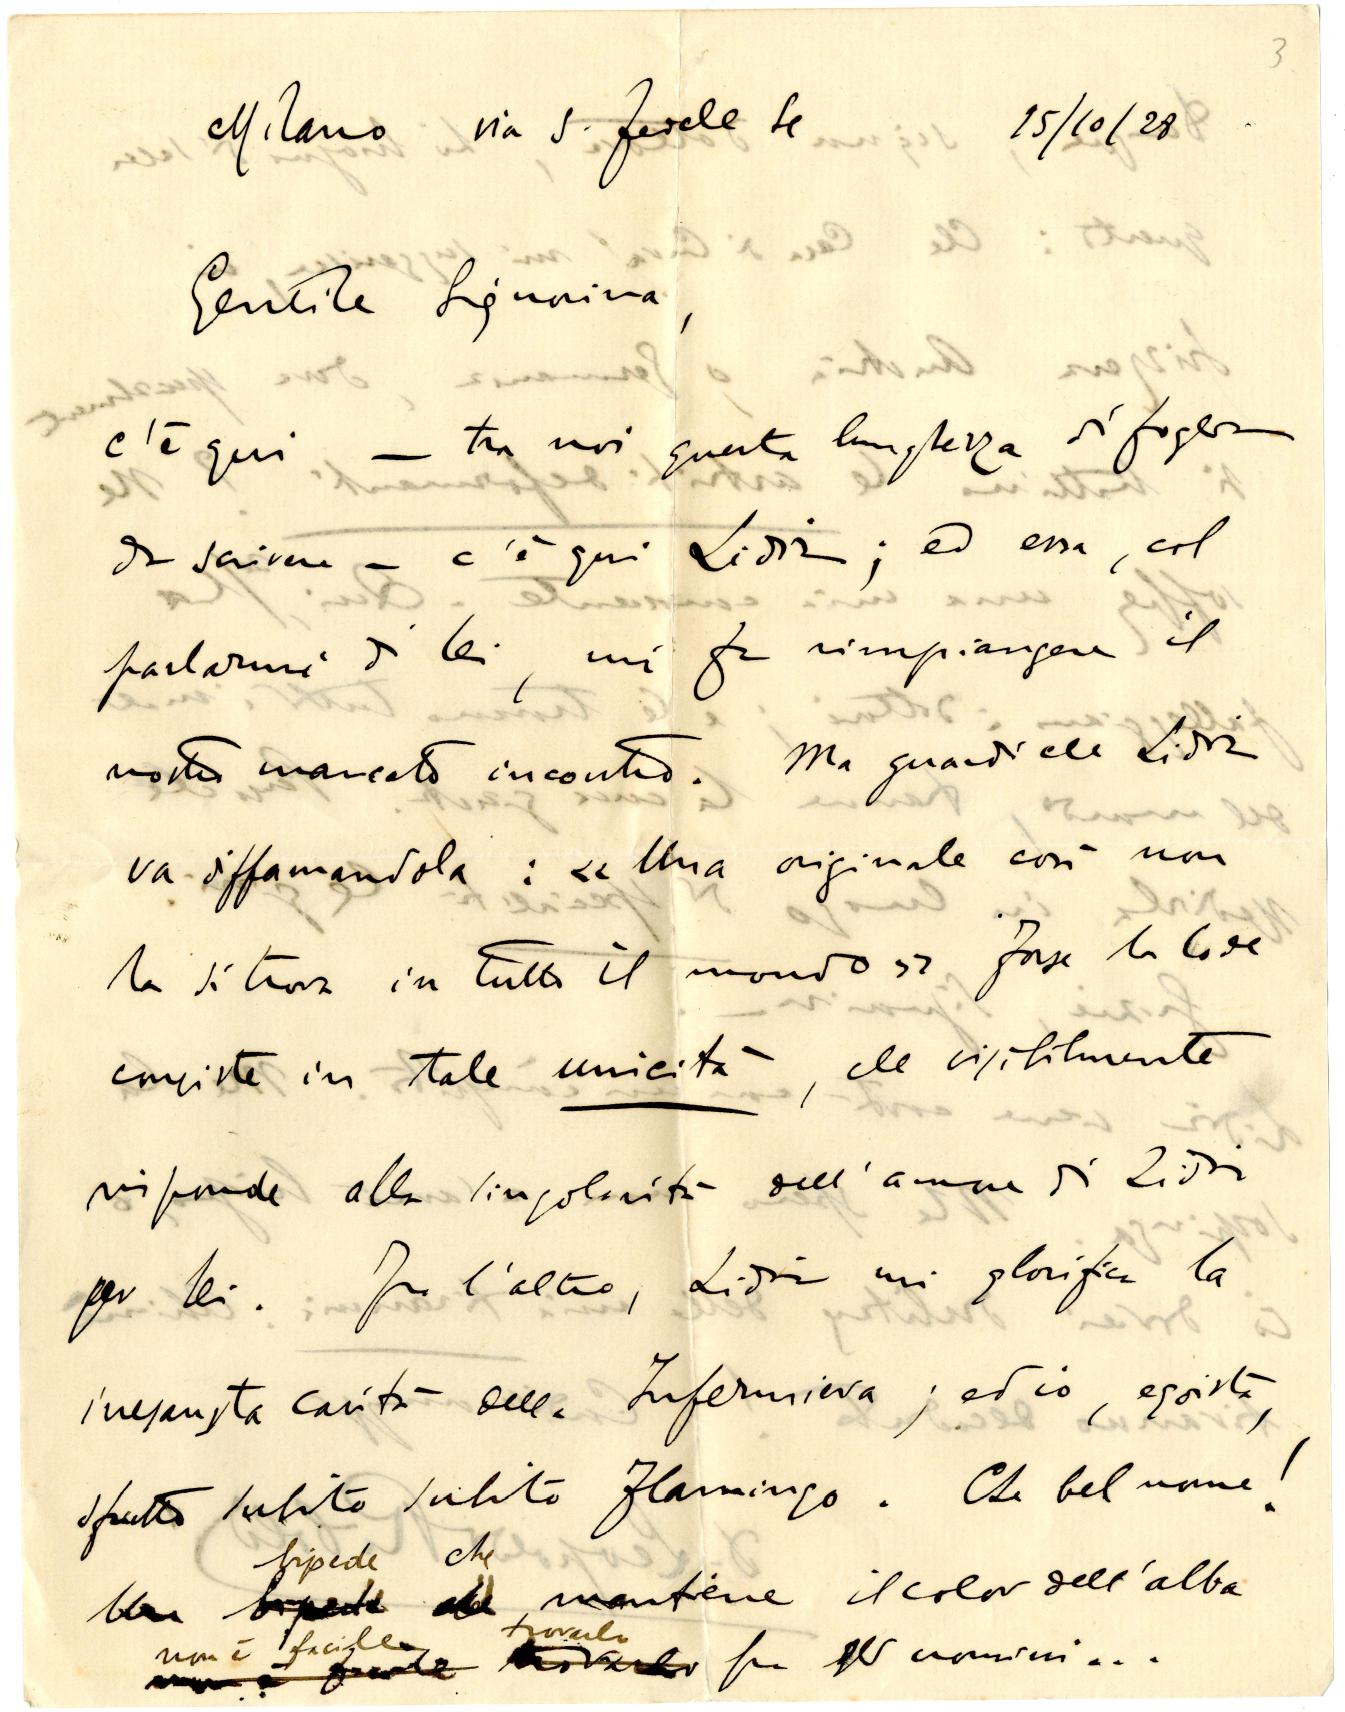 3
Milano via S. Fedele 15/10/28
Gentile Signorina,
c'è qui — tra noi questa lunghezza di foglio
da scrivere — c'è qui Lidia; ed essa, col
parlarmi di lei, mi fa rimpiangere il
nostro mancato incontro. Ma guardi che Lidia
va diffamandola: << Una originale così non
la si trova in tutto il mondo >> Forse la lode
consiste in tale unicità, che visibilmente
risponde alla singolarità dell'amore di Lidia
per lei. Fra l'altro, Lidia mi glorifica la
inesausta carità della Infermiera; ed io, egoista,
sfrutto subito subito Flamingo. Che bel nome!
bipede che
Un bipede che mantiene il color dell'alba
non è facile trovarlo
non è facile trovarlo fra gli uomini...